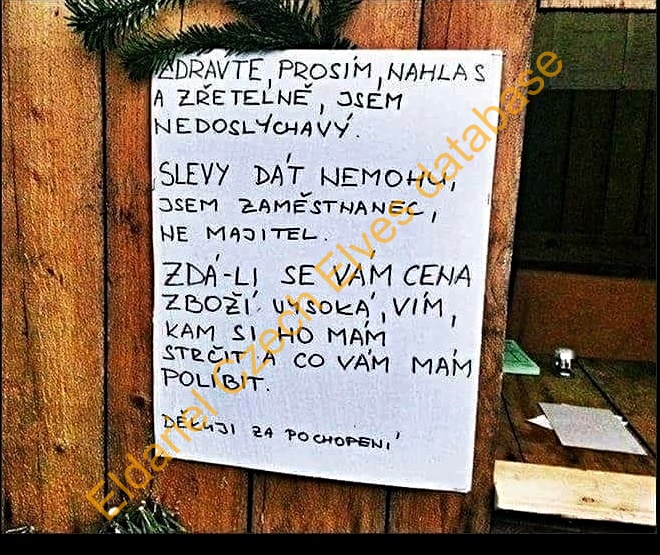 ZDRAVTE, PROSÍM, NAHLAS
A ZŘETELNĚ, JSEM
NEDOSLÝCHAVÝ.
SLEVY DÁT NEMOHU,
JSEM ZAMĚSTNANEC,
NE MAJITEL.
ZDÁ-LI SE VÁM CENA
ZBOŽÍ VYSOKÁ, VÍM,
KAM SI HO MÁM
STRČIT A CO VÁM MÁM
POLÍBIT.
DĚKUJI ZA POCHOPENÍ
Eldariel Czech Elves database